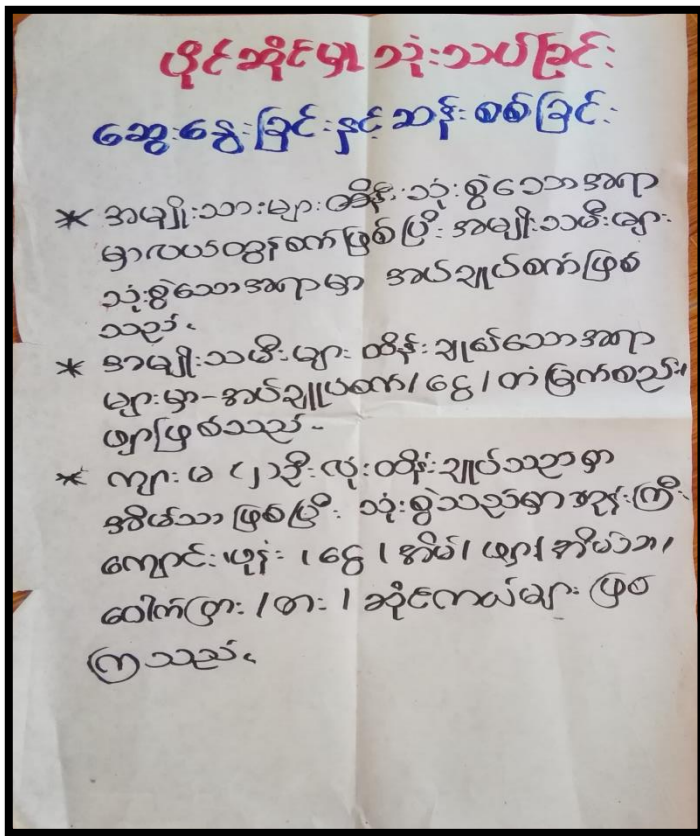 ပိုင်ဆိုင်မှု သုံးသပ်ခြင်း
ဆွေးနွေးခြင်းနှင့် ဆန်းစစ်ခြင်း
* အမျိုးသားများ ထိန်းသုံးစွဲသောအရာ
မှာလယ်ထွန်စက်ဖြစ်ပြီး အမျိုးသမီးများ
သုံးစွဲသောအရာမှာ အပ်ချုပ်စက်ဖြစ်
သည်။
* အမျိုးသမီးများ ထိန်းချုပ်သောအရာ
များမှာ - အပ်ချုပ်စက်/ ငွေ / တံမြက်စည်း/
ဖျာဖြစ်သည်။
* ကျား မ (၂) ဦးလုံးထိန်းချုပ်သည်မှာ
အိမ်သာ ဖြစ်ပြီး သုံးစွဲသည်မှာ ဘုန်းကြီး
ကျောင်း၊ ဖုန်း / ငွေ / အိမ်/ ဖျာ/ အိမ်သာ/
ပေါက်ပြား / ဓား / ဆိုင်ကယ်များ ဖြစ်
ကြသည်။